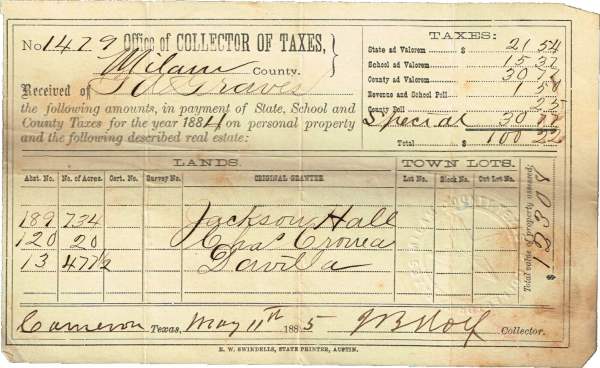 No. 1479 Office of COLLECTOR OF TAXES,
Milam County.
Received of Graves
the following amounts, in payment of State, School and
County Taxes for the year 1884 on personal property
and the following described real estate:
TAXES:
State ad Valorem $ 21 54
School ad Valorem 15 37
County ad Valorem 30 77
Revenue and School Poll 1 50
County Poll 25
Special 30 77
Total $ 100 22
LANDS. TOWN LOTS.
Abst. No. No. of Acres. Cert. No. Survey No. ORIGINAL GRANTEE. Lot No. Block No. Out Lot No.
189 734 Jackson Hall
120 20 Chas
13 477½ Davilla
Total value of property assessed:
$ 12308
Cameron Texas, May 11th 1885 Collector.
E. W. SWINDELLS, STATE PRINTER, AUSTIN.